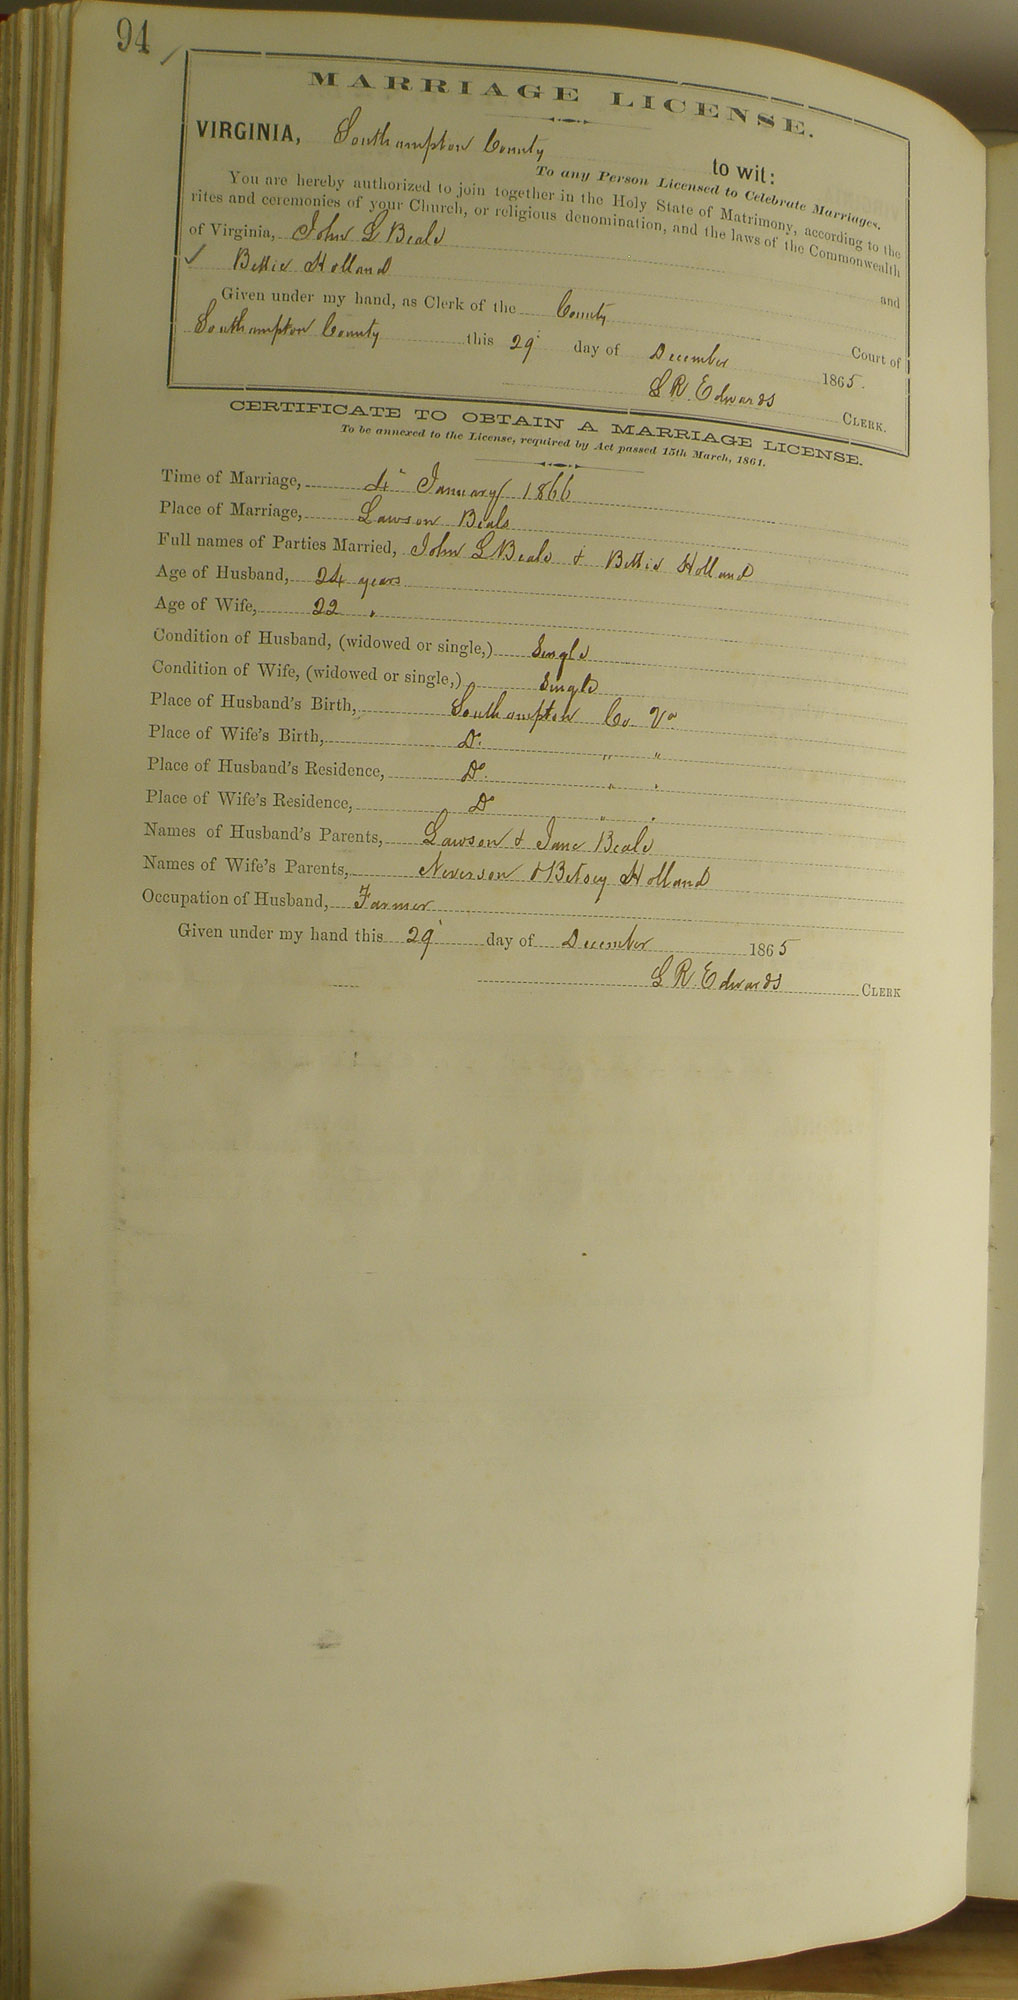 94
MARRIAGE LICENSE.
VIRGINIA, Southampton County to wit:
To any Person Licensed to Celebrate Marriages.
You are hereby authorized to join together in the Holy State of Matrimony, according to the
rites and ceremonies of your Church, or religious denomination, and the laws of the Commonwealth
of Virginia, John L Beale and
✓ Bettie Holland
Given under my hand, as Clerk of the County Court of
Southampton County this 29 day of December 1865.
L R. Edwards CLERK.
CERTIFICATE TO OBTAIN A MARRIAGE LICENSE.
To be annexed to the License, required by Act passed 15th March, 1861.
Time of Marriage, 4" January 1866
Place of Marriage, Lawson Beals
Full names of Parties Married, John L Beale & Bettie Holland
Age of Husband, 24 years
Age of Wife, 22 "
Condition of Husband, (widowed or single,) Single
Condition of Wife, (widowed or single,) Single
Place of Husband's Birth, Southampton Co Va
Place of Wife's Birth, Do " "
Place of Husband's Residence, Do " "
Place of Wife's Residence, Do " "
Names of Husband's Parents, Lawson & Jane Beale
Names of Wife's Parents, Neverson & Betsey Holland
Occupation of Husband, Farmer
Given under my hand this 29 day of December 1865
L R. Edwards CLERK